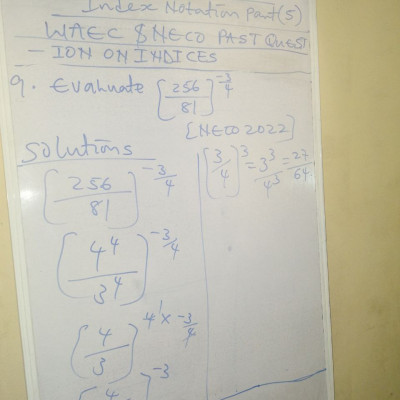 Index Notation Part(5)
WAEC & NECO PAST QUEST
- ION ON INDICES
9. Evaluate [256/81]^-3/4
[NECO 2022]
Solutions
[256/81]^-3/4
[4^4/3^4]^-3/4
[4/3]^4^1 x -3/4
[4/3]^-3
[3/4]^3 = 3^3/4^3 = 27/64